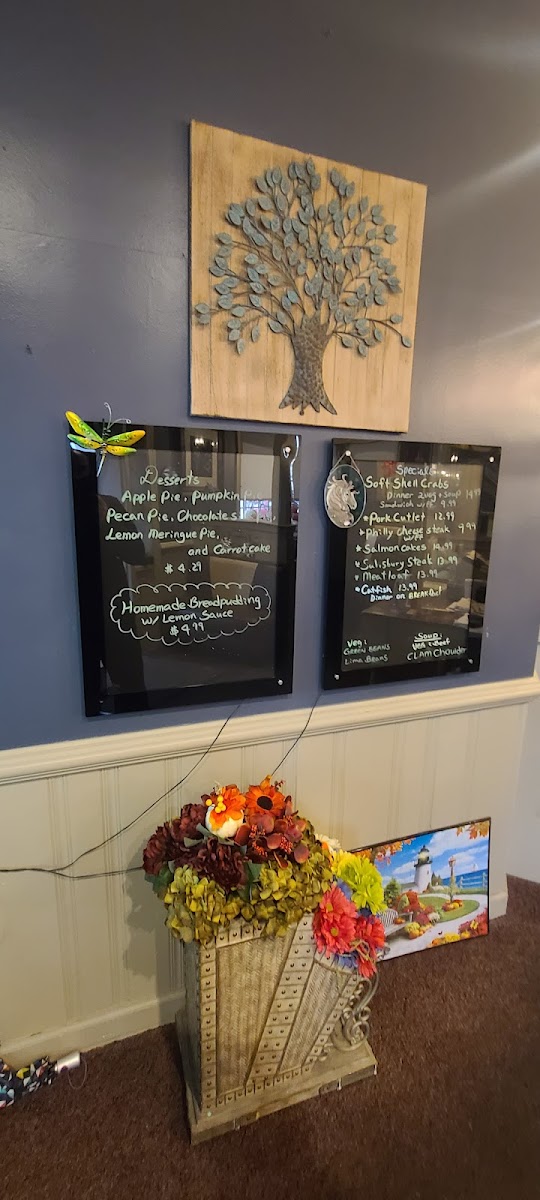 Desserts
Apple Pie, Pumpkin
Pecan Pie, Chocolate
Lemon Meringue Pie,
and Carrot cake
$ 4.29
Homemade Breadpudding
w/ Lemon Sauce
$ 4.99
Specials
Soft Shell Crabs
Dinner 2 veg + soup
Sandwich w/FF 9.99
*Pork Cutlet 12.99
*Philly cheese steak 9.99
*Salmon cakes
*Salisbury Steak
*Meatloaf 13.99
*Catfish 13.99
Dinner or BREAKfast
Veg:
GREEN BEANS
Lima Beans
Soup:
Veg + Beef
CLAM Chowder